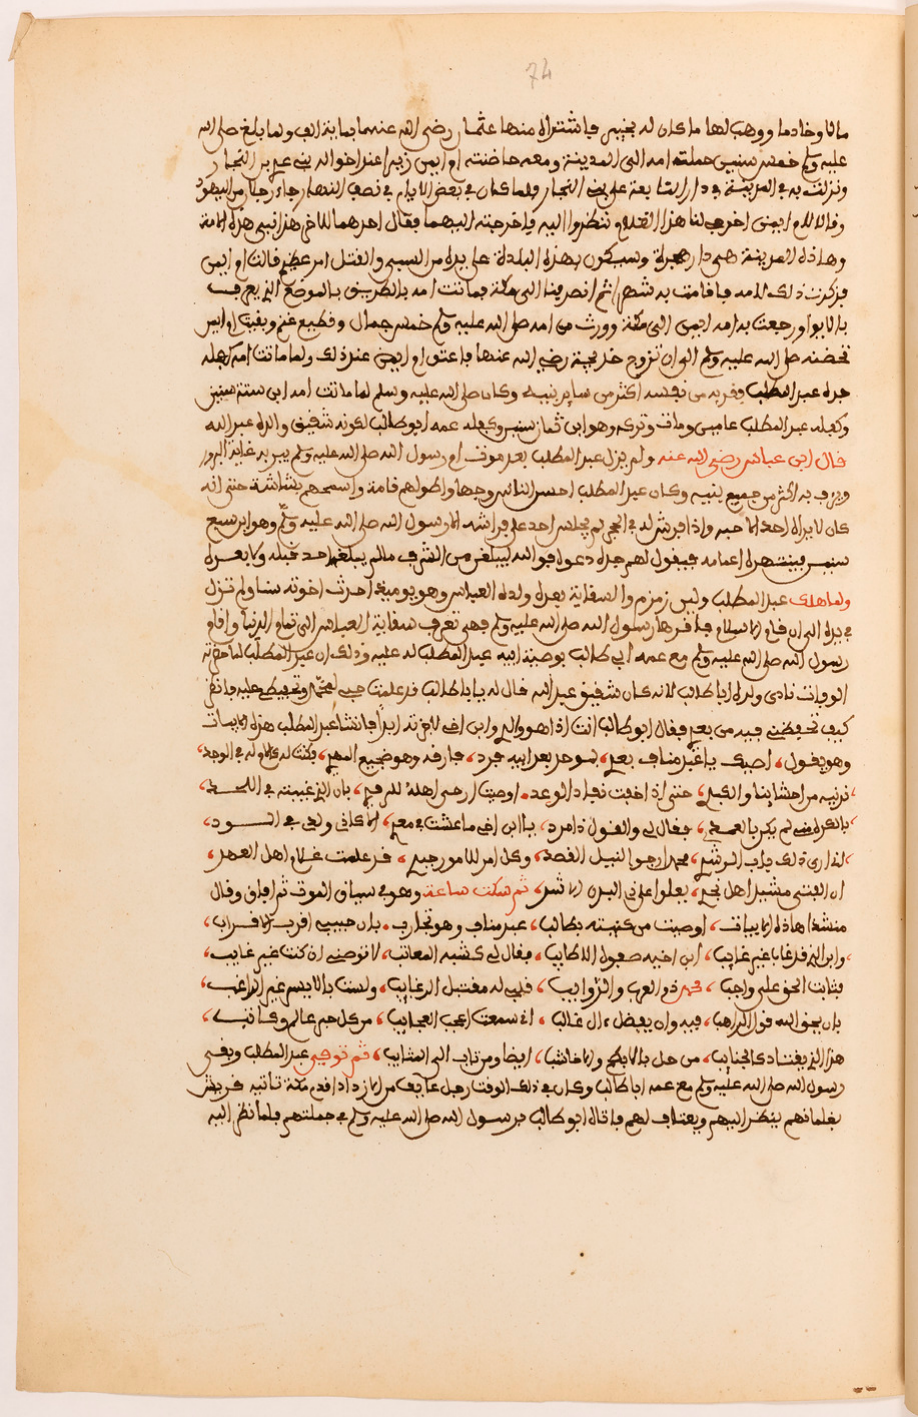 74
مالا وخادما ووهب لها ما كان له بخيبر فاشتراه منها عثمان رضي الله عنهما بماية الف ولما بلغ صلى الله
عليه وسلم خمس سنين حملته امه الى المدينة ومعه حاضنته ام ايمن زيرا عند اخواله بني عدي بن النجار
ونزلت به في المدينة في دار التابعة على بني النجار فلما كان في بعض الايام في نصف النهار جاء رجلان من اليهود
وقالا لام ايمن اخرجي لنا هذا الغلام ننظروا اليه فاخرجته اليهما فقال احدهما للاخر هذا نبي هذه الامة
وهاذه المدينة هي دار هجرة وسيكون بهذه البلدة على يده من السبي والقتل امر عظيم قالت ام ايمن
فذكرت ذلك لامه فاقامت به شهرا ثم انصرفنا الى مكة فماتت امه بالطريق بالموضع الذي يعرف
بالابوا ورجعت به ام ايمن الى مكة وورث من امه صلى الله عليه وسلم خمس جمال وقطيع غنم وبقيت ام ايمن
تحضنه صلى الله عليه وسلم الى ان تزوج خديجة رضي الله عنها فاعتق ام ايمن عند ذلك ولما ماتت امه كفله
جده عبد المطلب وقربه من نفسه اكثر من ساير بنيه وكان صلى الله عليه وسلم لما ماتت امه ابن ستة سنين
وكفله عبد المطلب عامين ومات وتركه وهو ابن ثمان سنين وكفله عمه ابو طالب لكونه شقيق والده عبد الله
قال ابن عباس رضي الله عنه ولم يزل عبد المطلب بعد موت ام رسول الله صلى الله عليه وسلم يبر به غاية البرور
ويرف به اكثر من جميع بنيه وكان عبد المطلب احسن الناس وجها واطولهم قامة واسمحهم بشاشة حتى انه
كان لا يراه احد الا احبه واذا فرش له في الحجر لم يجلس احد على فراشه الا رسول الله صلى الله عليه وسلم وهو ابن سبع
سنين فينتهره اعمامه فيقول لهم جده دعوه فوالله ليبلغن من الشرف مالم يبلغه احد قبله ولا بعده
ولما هلك عبد المطلب ولي زمزم والسقاية بعده ولده العباس وهو يوميذ احدث اخوته سنا ولم تزل
في يده الى ان قام الاسلام فاقرها رسول الله صلى الله عليه وسلم فهي تعرف سقاية العباس الى تمام الدنيا واقام
رسول الله صلى الله عليه وسلم مع عمه ابي طالب بوصية ابيه عبد المطلب له عليه وذلك ان عبد المطلب لما حضرته
الوفات نادى ولده ابا طالب لانه كان شقيق عبد الله فقال له يا ابا طالب قد علمت حبي لمحمد وتحفيظي عليه فانظر
كيف تحفظني فيه من بعدي فقال ابو طالب انت اذا هو والدي وابن اخي لا احزنه ابدا فانشا عبد المطلب هذه الابيات
وهو يقول، اوصيك يا عبد مناف بعدي، بموحد بعد ابيه فرد، فارقه وهو ضجيع المهد، فكنت له كالام له في الوجد،
تدنيه من احشايها والكبد، حتى اذا خفت نفاد الوعد. اوصيت ارجى اهلنا للرفد، بابن الذي غيبته في اللحد،
بالكره مني لم يكن بالعمد، فقال لي والقول ذا مرد، يا ابن اخي ما عشت في معد، الا كادنى ولدي في الود،
لذا ارى ذلك باب الرشد، محمد ارجوا النبيل القصد، وكل امر للامور جد، قد علمت علام اهل العهد،
ان الفتى مشيد اهل نجد، يعلوا على ذي البدن الاشد، ثم سكت ساعة وهو في سياق الموت ثم افاق وقال
منشدا هاذه الابيات، اوصيت من كنيته بطالب، عبد مناف وهو ذو تجارب. بابن حبيب اقرب الاقارب،
وابن الذي قد غاب غير غايب، ابن اخيه صعوه الاطايب، فقال لي كشبه المعاتب، لا توصني ان كنت غير غايب،
بثابت الحق علي واجب، محمد ذو العرب والذوايب، قلبي له مقتبل الرغايب، ولست بالايس غير الراغب،
بان يحق الله قول الراهب، فيه وان يفضل ءال غالب، اني سمعت اعجب العجايب، من كل حبر عالم وكاتب،
هذا الذي يقتاد كالجنايب، من حل بالابطح والاخاشب، ايضا ومن تاب الى المتايب، ثم توفي عبد المطلب وبقي
رسول الله صلى الله عليه وسلم مع عمه ابا طالب وكان في ذلك الوقت رجل عايف من ازد اذا قدم مكة تاتيه قريش
بغلمانهم ينظر اليهم ويعتاف لهم فاتاه ابو طالب برسول الله صلى الله عليه وسلم في جملتهم فلما نظر اليه